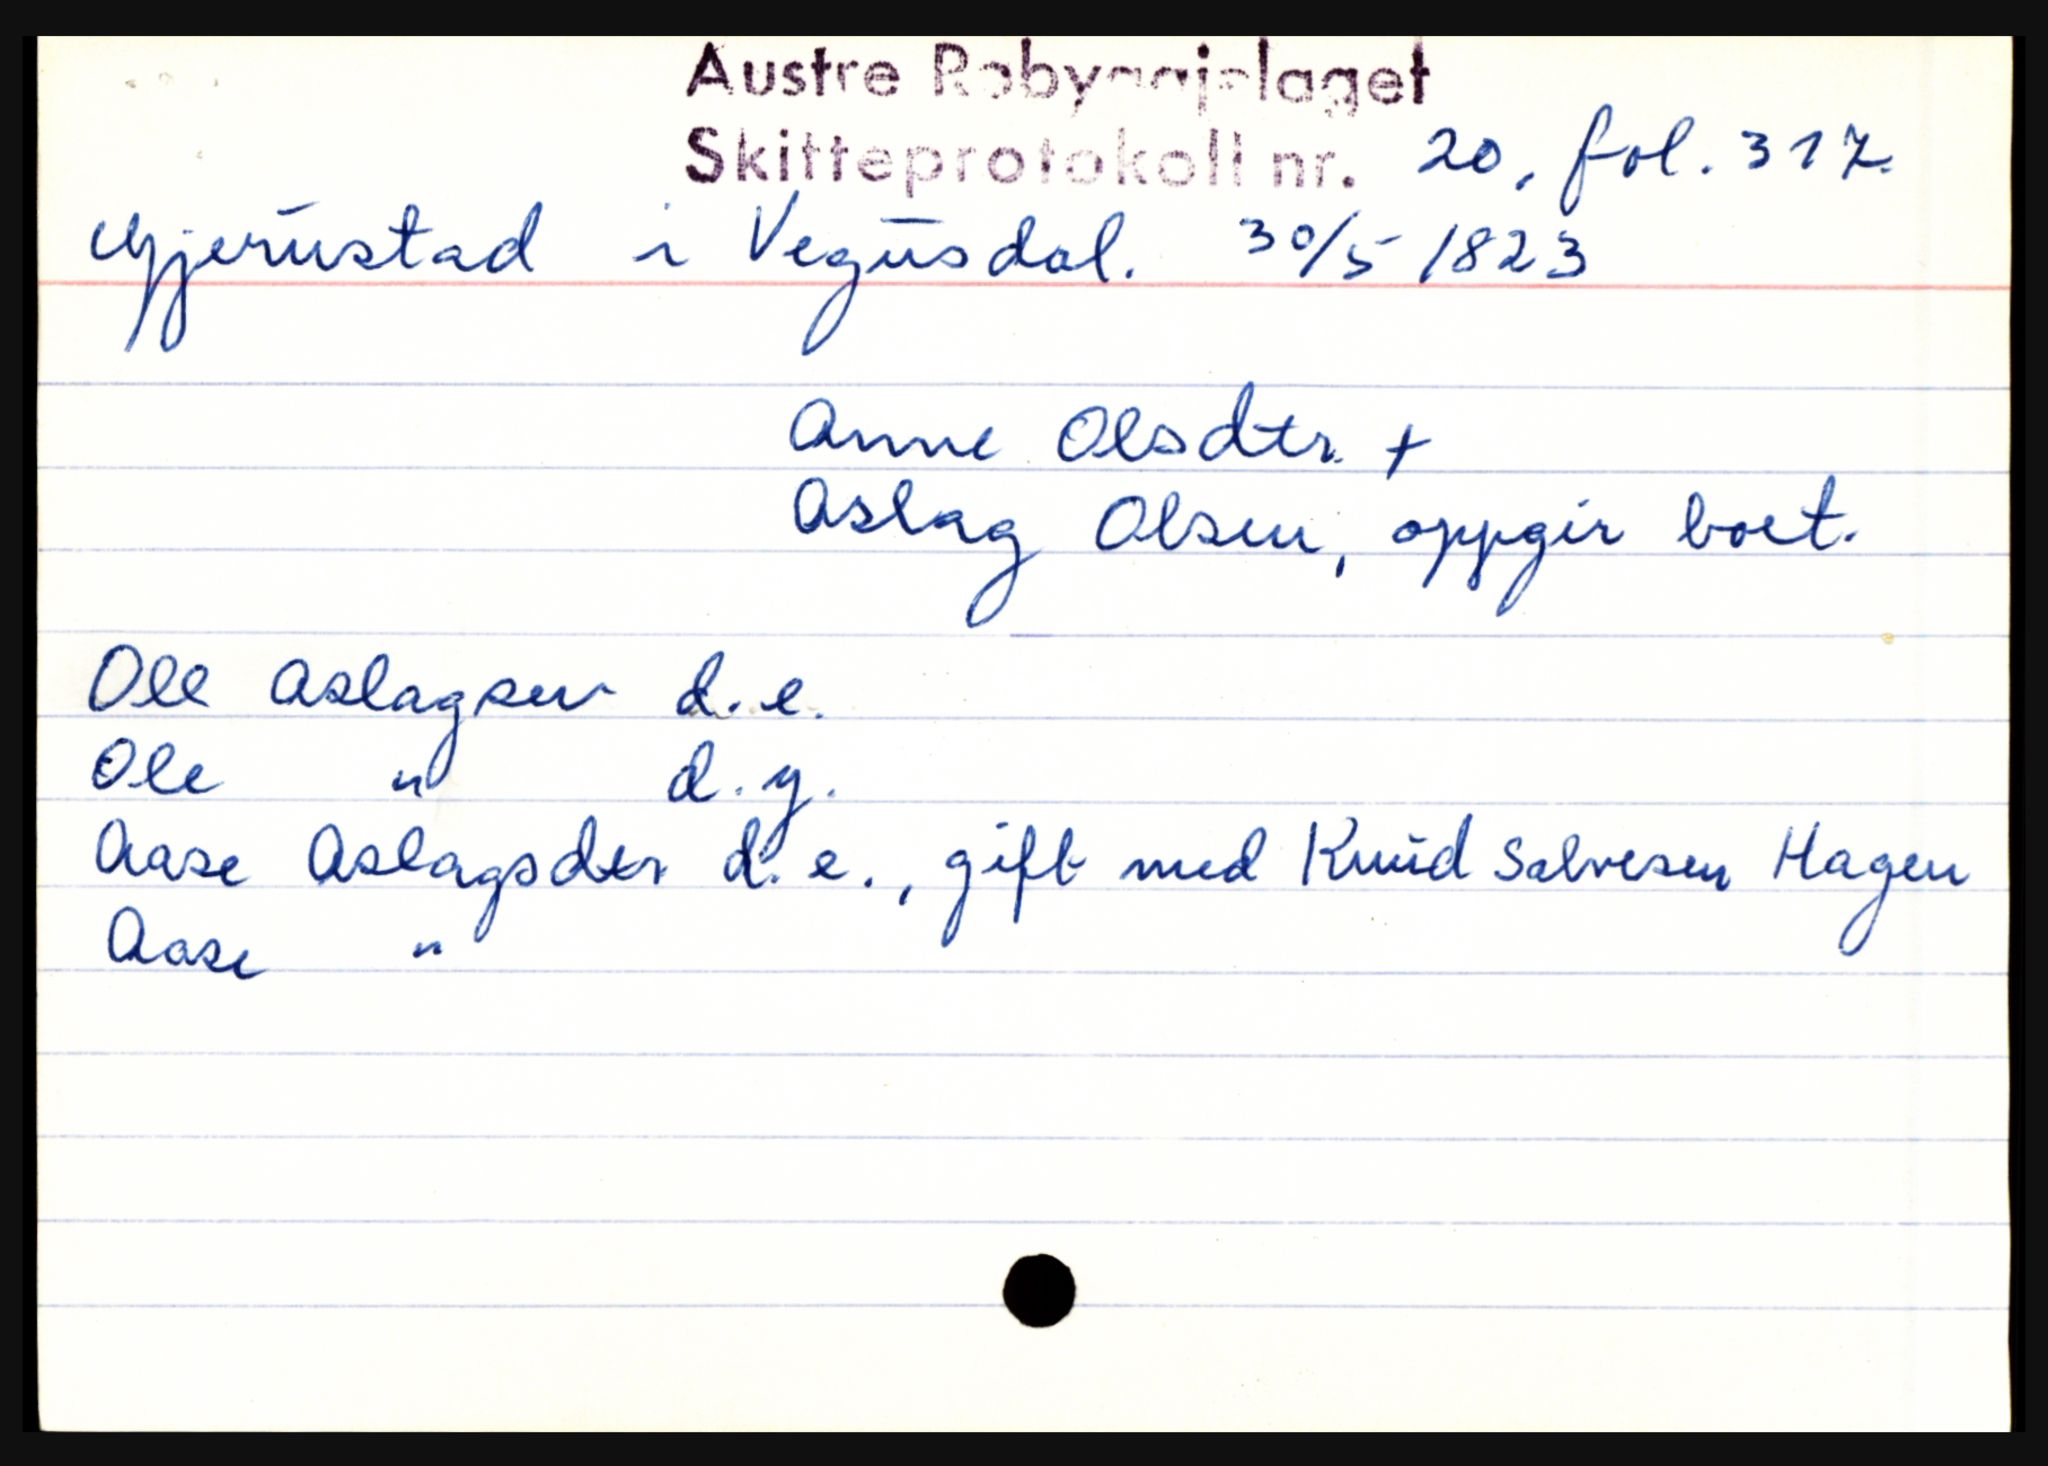 Austre Robyggjelaget
Skifteprotokoll nr. 20, fol. 317.
Gjerustad i Vegusdal. 30/5 1823
Anne Olsdtr. +
Aslag Olsen, oppgir boet.
Ole Aslagsen d. e.
Ole " d. y.
Aase Aslagsdtr d. e., gift med Knud Salvesen Hagen
Aase "